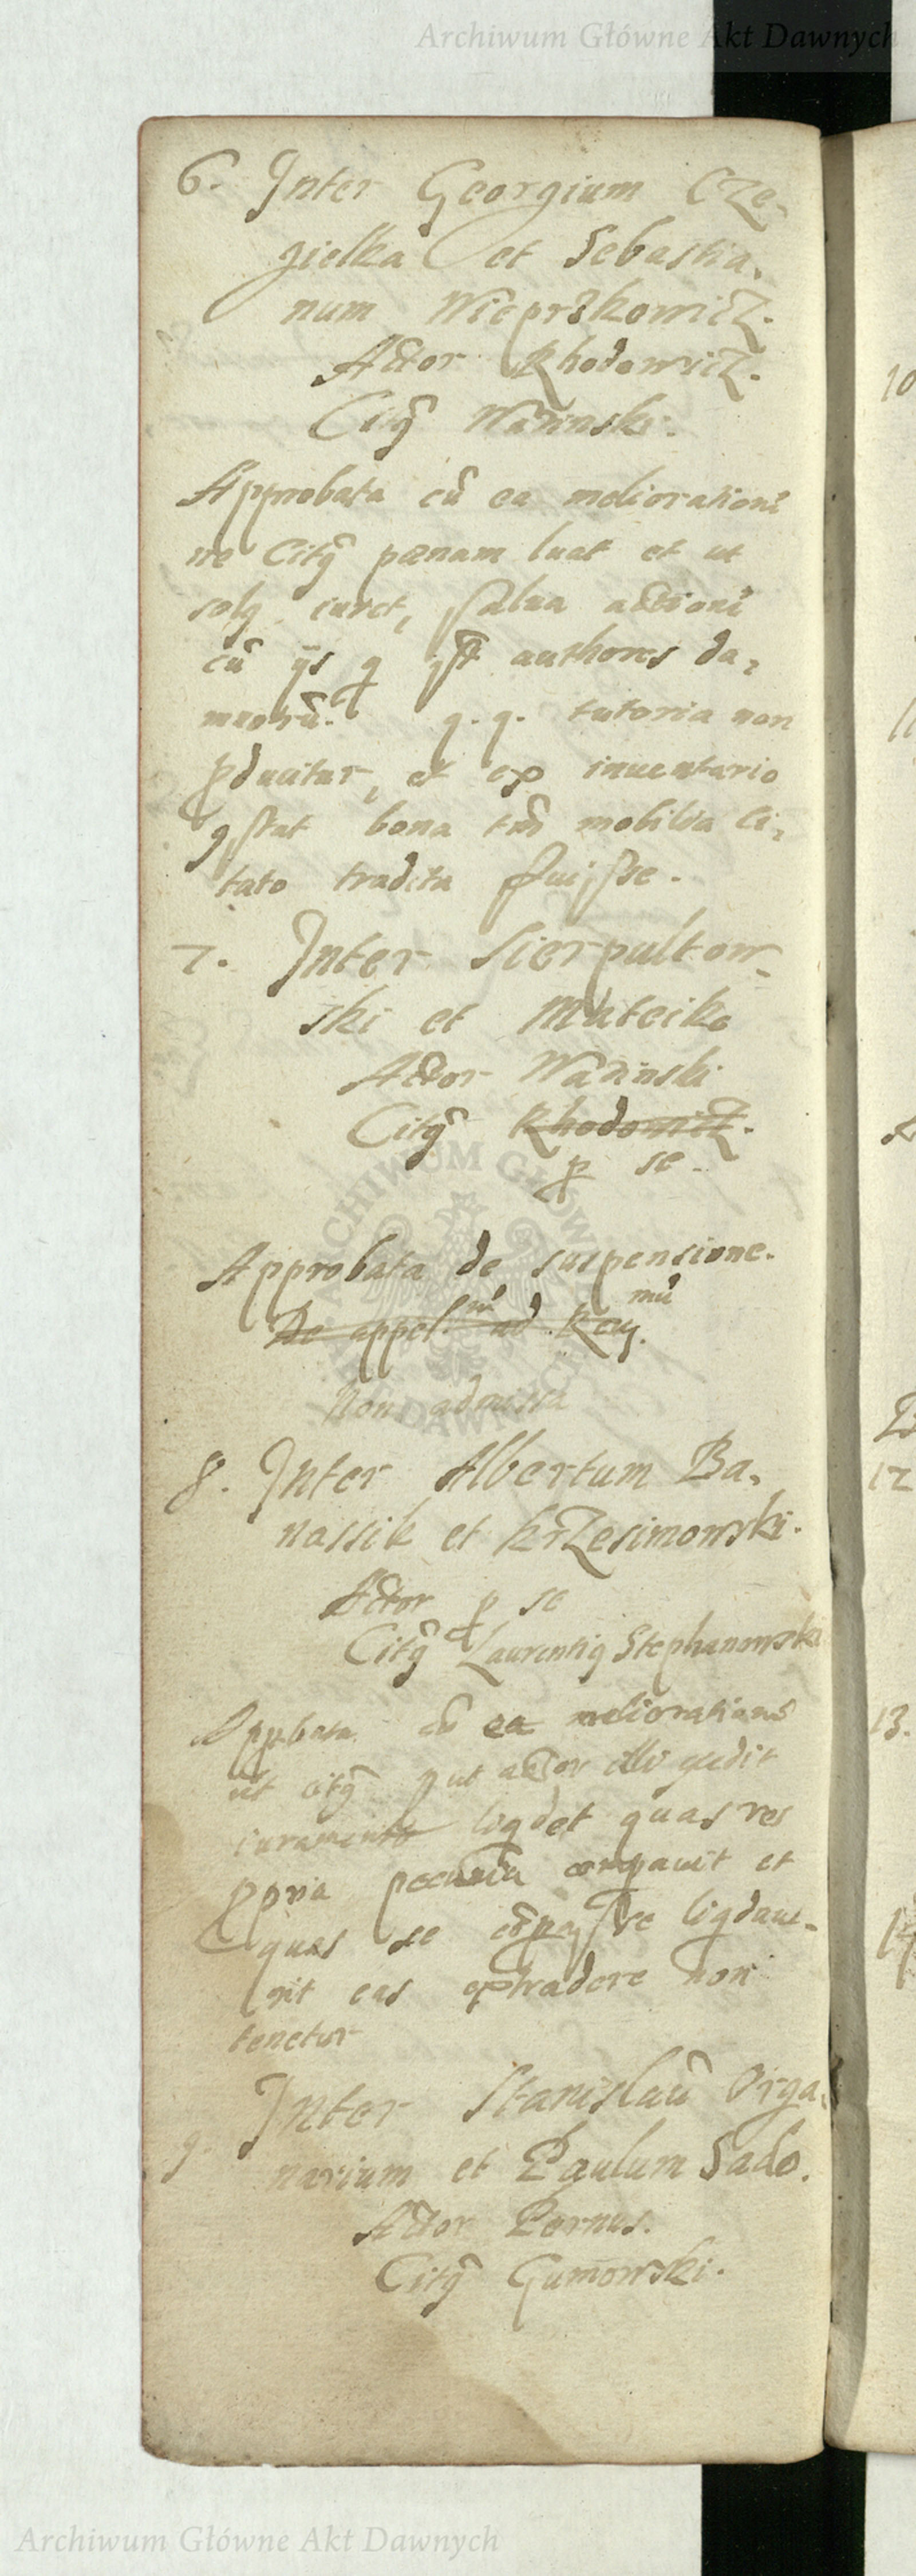 Archiwum Główne Akt Dawnych
6. Inter Georgium Cze-
gielka et Sebastia-
num Wieprzkowicz.
Actor Rhodowicz.
Citq̃ Waninski.
Approbata cũ ea melioratione
ne Citq̃ pœnam luat et ut
solq iuret, salua actione
cũ ijs q authores da-
mnorũ. q. q. tutoria non
ꝓducitur, et ex inuentario
ꝯstat bona tm̃ mobilia Ci-
tato tradita fuisse.
7. Inter Sierpultow-
ski et Mateiko
Actor Waninski
Citq̃ Rhodowicz.
ꝑ se.
Approbata de suspensione.
De appel ad Reg. mũ
Non admissa
8. Inter Albertum Ba-
nassik et Krzesimowski.
Actor ꝑ se
Citq̃ Laurentiq Stephanowski
Appbata cũ ea melioratione
ut citq̃ ut actor illi
iuramento liqdet quas res
ꝓpria pecunia comparauit et
quas se liqdaue-
rit eas extradere non
tenetur
9. Inter Stanislaũ Orga-
narium et Paulum Sado.
Actor Pernus.
Citq̃ Gumowski.
10
11
12
13.
14
Archiwum Główne Akt Dawnych